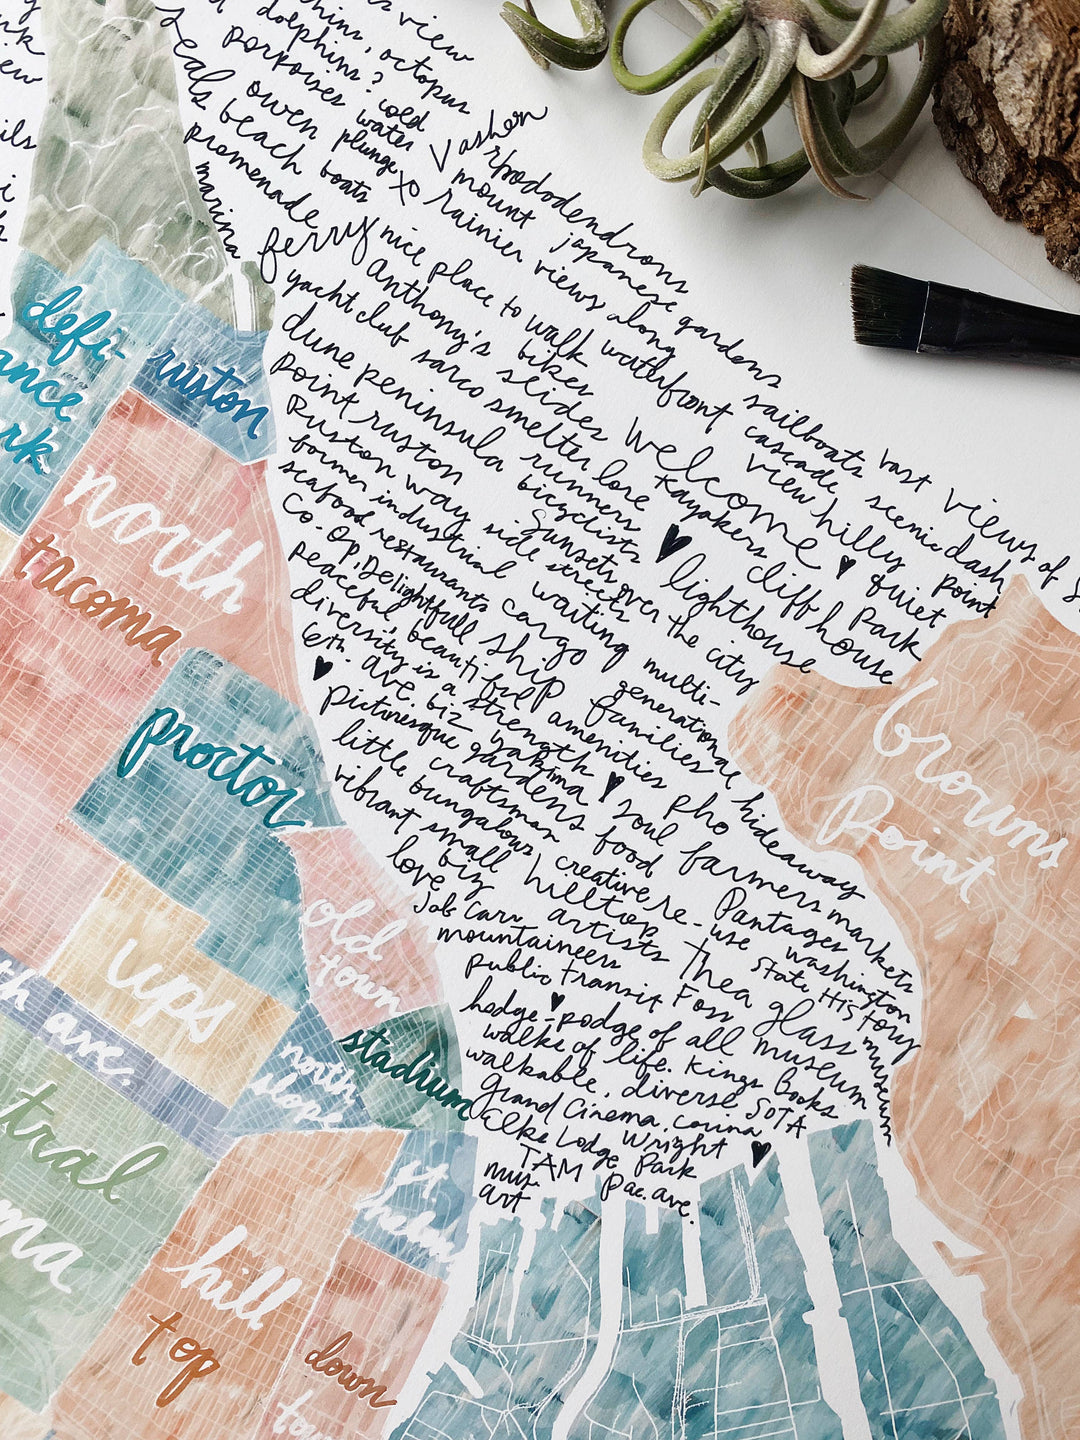 view
dolphins, octopus
porpoises ? cold
seals owen water Vashon
beach plunge rhododendrons
promenade boats xo mount japanese gardens
marina rainier views along sailboats vast views of
ferry nice place to walk waterfront cascade scenic dash point
Anthony's bikes view hilly quiet
yacht club slides Welcome ♥ Park
dune peninsula sarco smelter lore kayakers cliff house
point ruston runners ♥ lighthouse
Ruston way bicyclists
side streets Sunsets over the city
former industrial waiting multi-
seafood restaurants cargo generational
Co-op, Delightfull ship families hideaway
peaceful, beautiful amenities pho farmers markets
diversity is a strength ♥ soul
6th. ave. biz yakima food Pantages washington
♥ picturesque gardens creative re-use State History
little craftsman hilltop Thea glass museum
vibrant bungalows artists Foss museum
small biz
love
Job Carr
mountaineers
public transit
hodge-podge of all
♥ walks of life. Kings Books
walkable, diverse. SOTA
Grand Cinema, corina
Elks Lodge Wright Park ♥
TAM pac. ave.
mus.
art
defi-
ance
rk
ruston
north
tacoma
proctor
old
town
ups
th ave.
north
slope
stadium
tral
ma
hill
top
st
helens
down
town
browns
Point